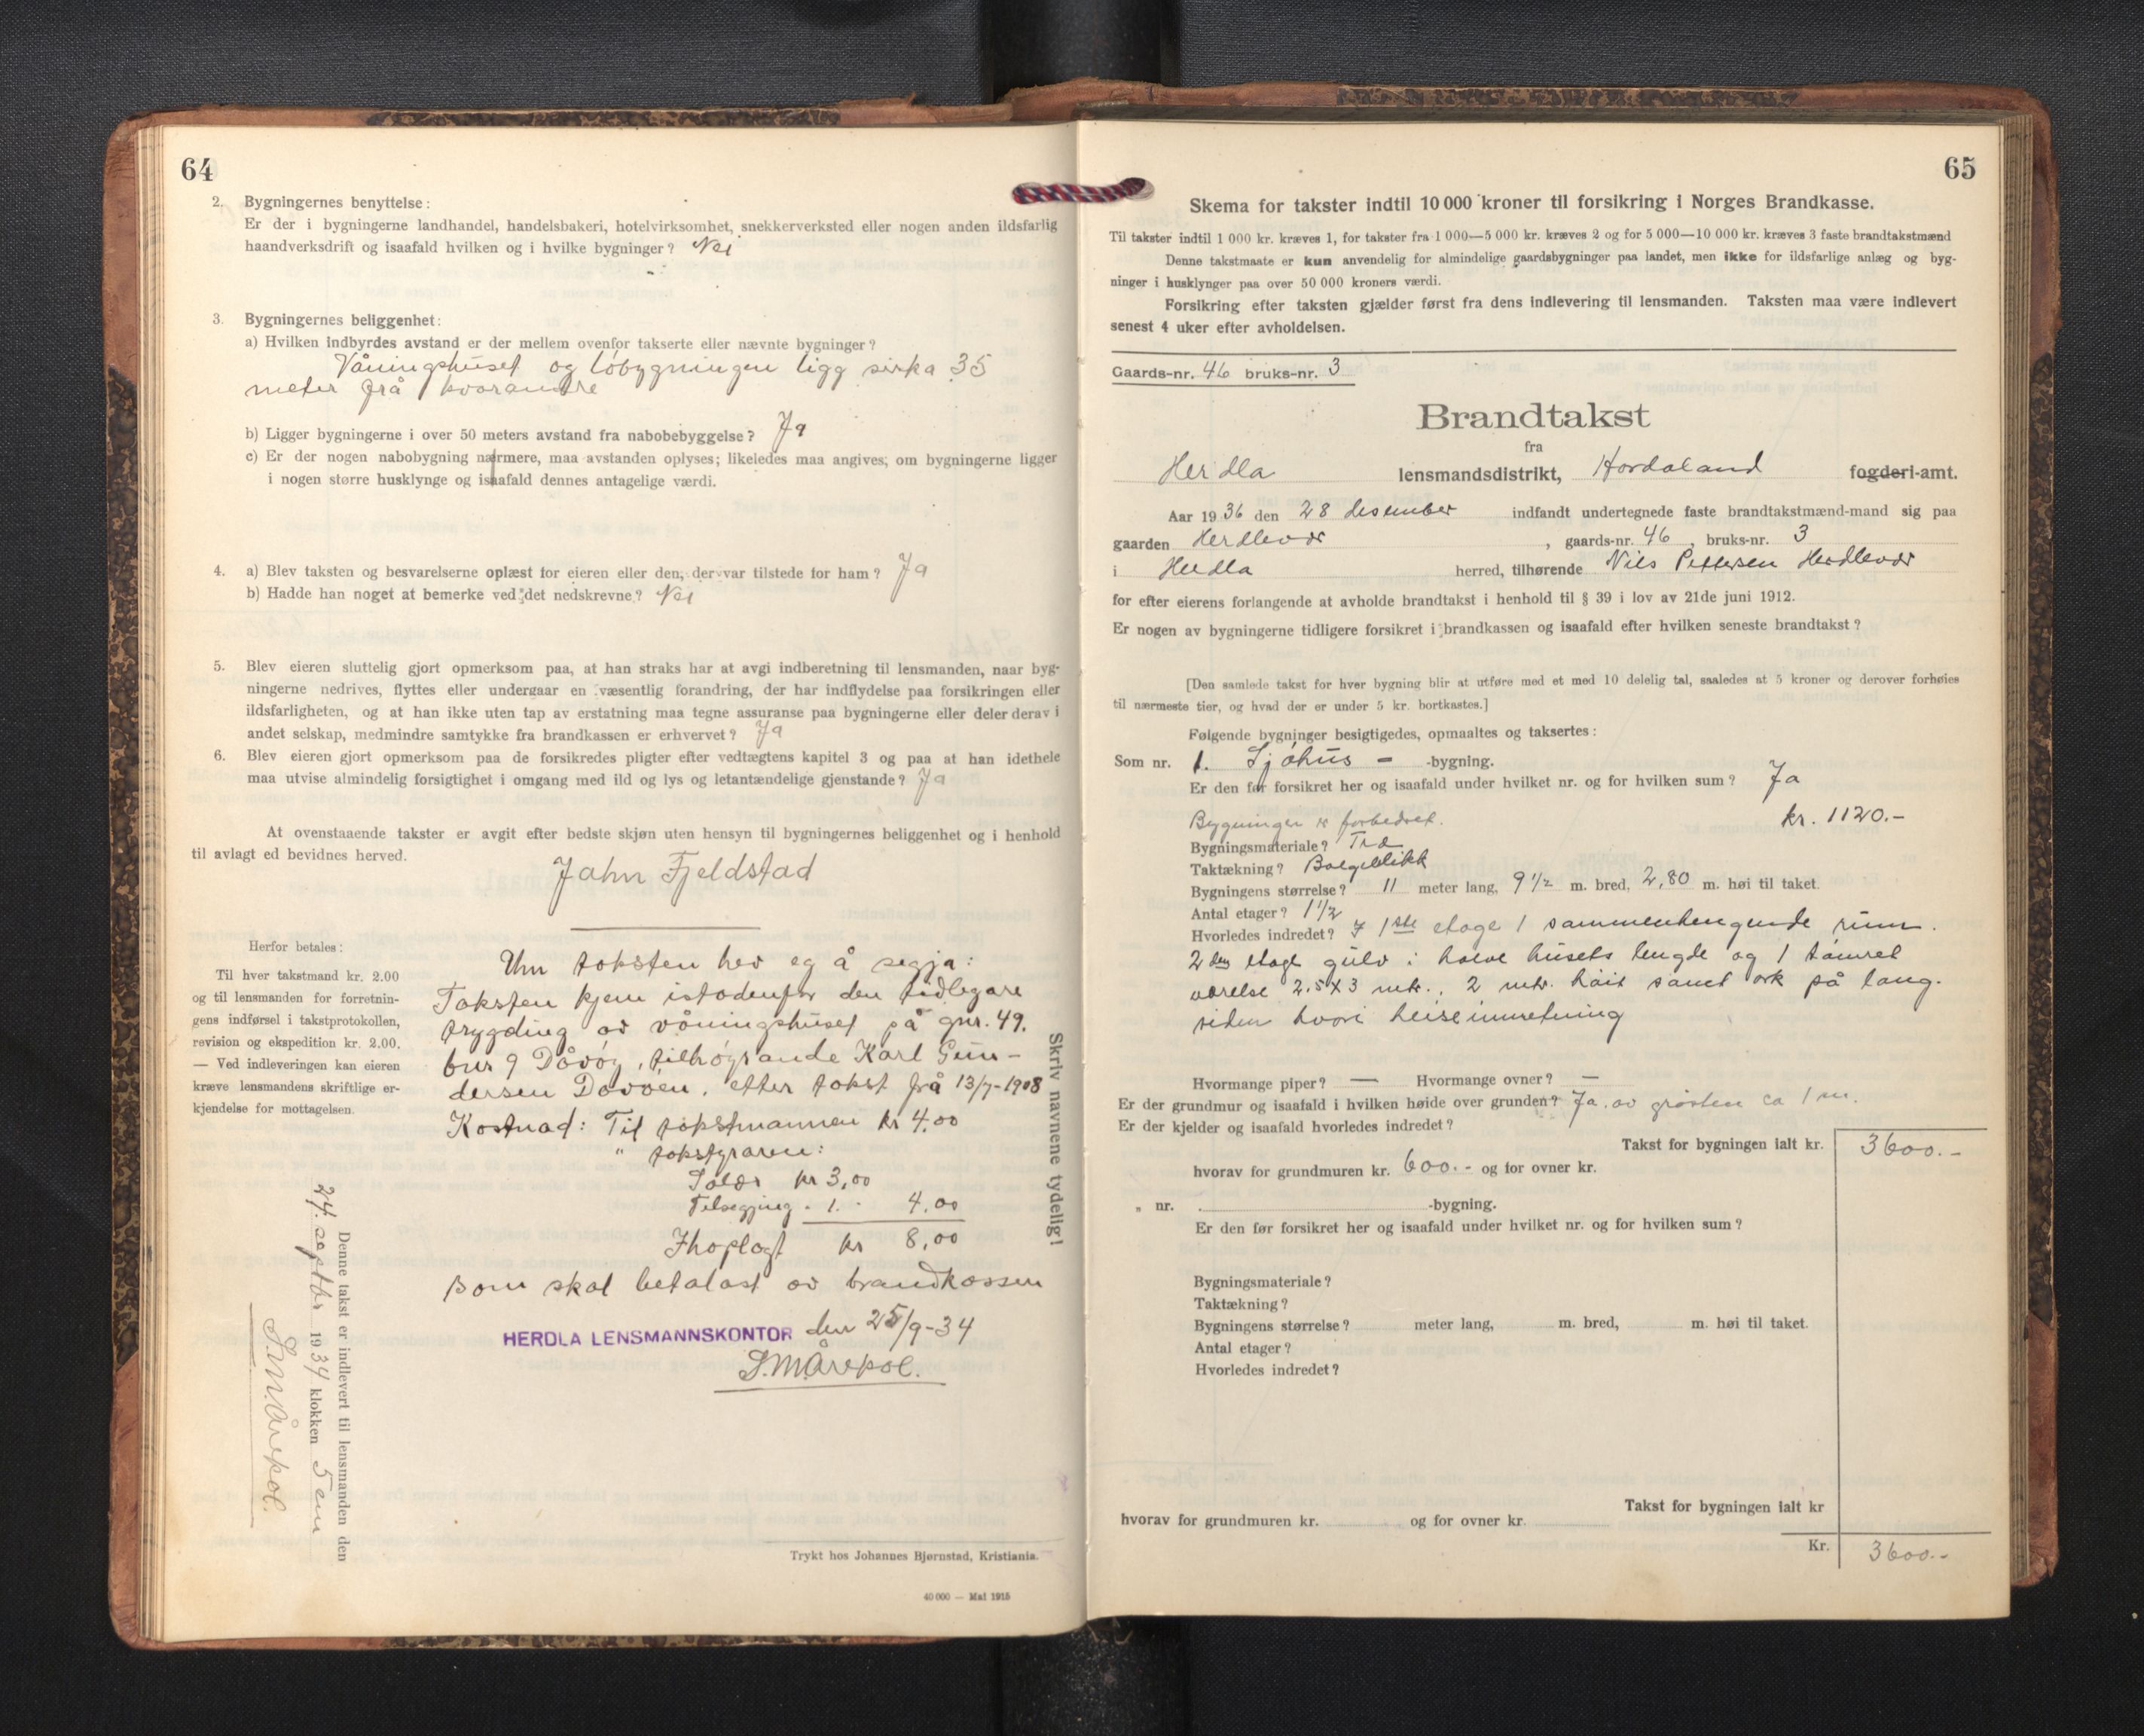 64
2. Bygningernes benyttelse:
Er der i bygningerne landhandel, handelsbakeri, hotelvirksomhet, snekkerverksted eller nogen anden ildsfarlig
haandverksdrift og isaafald hvilken og i hvilke bygninger? Nei
3. Bygningernes beliggenhet:
a) Hvilken indbyrdes avstand er der mellem ovenfor takserte eller nævnte bygninger?
Våningshuset og løbygningen ligg sirka 35
meter frå kvarandre
b) Ligger bygningerne i over 50 meters avstand fra nabobebyggelse? Ja
c) Er der nogen nabobygning nærmere, maa avstanden oplyses; likeledes maa angives, om bygningerne ligger
i nogen større husklynge og isaafald dennes antagelige værdi.
4. a) Blev taksten og besvarelserne oplæst for eieren eller den, der var tilstede for ham? Ja
b) Hadde han noget at bemerke ved det nedskrevne? Nei
5. Blev eieren sluttelig gjort opmerksom paa, at han straks har at avgi indberetning til lensmanden, naar byg-
ningerne nedrives, flyttes eller undergaar en væsentlig forandring, der har indflydelse paa forsikringen eller
ildsfarligheten, og at han ikke uten tap av erstatning maa tegne assuranse paa bygningerne eller deler derav i
andet selskap, medmindre samtykke fra brandkassen er erhvervet? Ja
6. Blev eieren gjort opmerksom paa de forsikredes pligter efter vedtægtens kapitel 3 og paa at han idethele
maa utvise almindelig forsigtighet i omgang med ild og lys og letantændelige gjenstande? Ja
At ovenstaaende takster er avgit efter bedste skjøn uten hensyn til bygningernes beliggenhet og i henhold
til avlagt ed bevidnes herved.
John Fjeldstad
Herfor betales:
Til hver takstmand kr. 2.00
og til lensmanden for forretnin-
gens indførsel i takstprotokollen,
revision og ekspedition kr. 2.00.
— Ved indleveringen kan eieren
kræve lensmandens skriftlige er-
kjendelse for mottagelsen.
Um taksten hev eg å segja:
Taksten kjem istadenfor den tidlegare
trygding av våningshuset på gnr. 49.
bnr 9 Dåvøy, tilhøyrande Karl Gun-
dersen Davøen, etter takst frå 13/7-1908
Kostnad: Til takstmannen kr 4,00
" takstgraven:
Salær kr 3,00
Tilsegjing - 1. - 4,00
Ihoplagt kr 8,00
som skal betalast av brandkassen
HERDLA LENSMANNSKONTOR den 25/9-34
S.M.Årekol.
Skriv navnene tydelig!
Denne takst er indlevert til lensmanden den
24. septbr 1934 klokken 5 em
S.M.Årekol.
Trykt hos Johannes Bjørnstad, Kristiania.
40 000 — Mai 1915
65
Skema for takster indtil 10 000 kroner til forsikring i Norges Brandkasse.
Til takster indtil 1 000 kr. kræves 1, for takster fra 1 000—5 000 kr. kræves 2 og for 5 000—10 000 kr. kræves 3 faste brandtakstmænd
Denne takstmaate er kun anvendelig for almindelige gaardsbygninger paa landet, men ikke for ildsfarlige anlæg og byg-
ninger i husklynger paa over 50 000 kroners værdi.
Forsikring efter taksten gjælder først fra dens indlevering til lensmanden. Taksten maa være indlevert
senest 4 uker efter avholdelsen.
Gaards-nr. 46 bruks-nr. 3
Brandtakst
fra
Herdla lensmandsdistrikt, Hordaland fogderi-amt.
Aar 1936 den 28 desember indfandt undertegnede faste brandtakstmænd-mand sig paa
gaarden Herdlevær, gaards-nr. 46, bruks-nr. 3
i Herdla herred, tilhørende Nils Pettersen Herdlevær
for efter eierens forlangende at avholde brandtakst i henhold til § 39 i lov av 21de juni 1912.
Er nogen av bygningerne tidligere forsikret i brandkassen og isaafald efter hvilken seneste brandtakst?
[Den samlede takst for hver bygning blir at utføre med et med 10 delelig tal, saaledes at 5 kroner og derover forhøies
til nærmeste tier, og hvad der er under 5 kr. bortkastes.]
Følgende bygninger besigtigedes, opmaaltes og taksertes:
Som nr. 1. Sjøhus - -bygning.
Er den før forsikret her og isaafald under hvilket nr. og for hvilken sum? Ja
Bygninger er forbedret. kr. 1120.-
Bygningsmateriale? Tre
Taktækning? Bølgeblikk
Bygningens størrelse? 11 meter lang, 9 1/2 m. bred, 2,80 m. høi til taket.
Antal etager? 1 1/2
Hvorledes indredet? I 1ste etage 1 sammenhengende rum.
2den etage gulv i halve husets lengde og 1 tømret
værelse 2.5x3 mtr., 2 mtr. høit samt ark på lang-
siden hvori heiseinnretning
Hvormange piper? — Hvormange ovner? —
Er der grundmur og isaafald i hvilken høide over grunden? Ja, av gråsten ca 1 m.
Er der kjelder og isaafald hvorledes indredet?
Takst for bygningen ialt kr. 3600.-
hvorav for grundmuren kr. 600.- og for ovner kr.
„ nr. -bygning.
Er den før forsikret her og isaafald under hvilket nr. og for hvilken sum?
Bygningsmateriale?
Taktækning?
Bygningens størrelse? meter lang, m. bred, m. høi til taket.
Antal etager?
Hvorledes indredet?
Takst for bygningen ialt kr
hvorav for grundmuren kr. og for ovner kr.
Kr. 3600.-